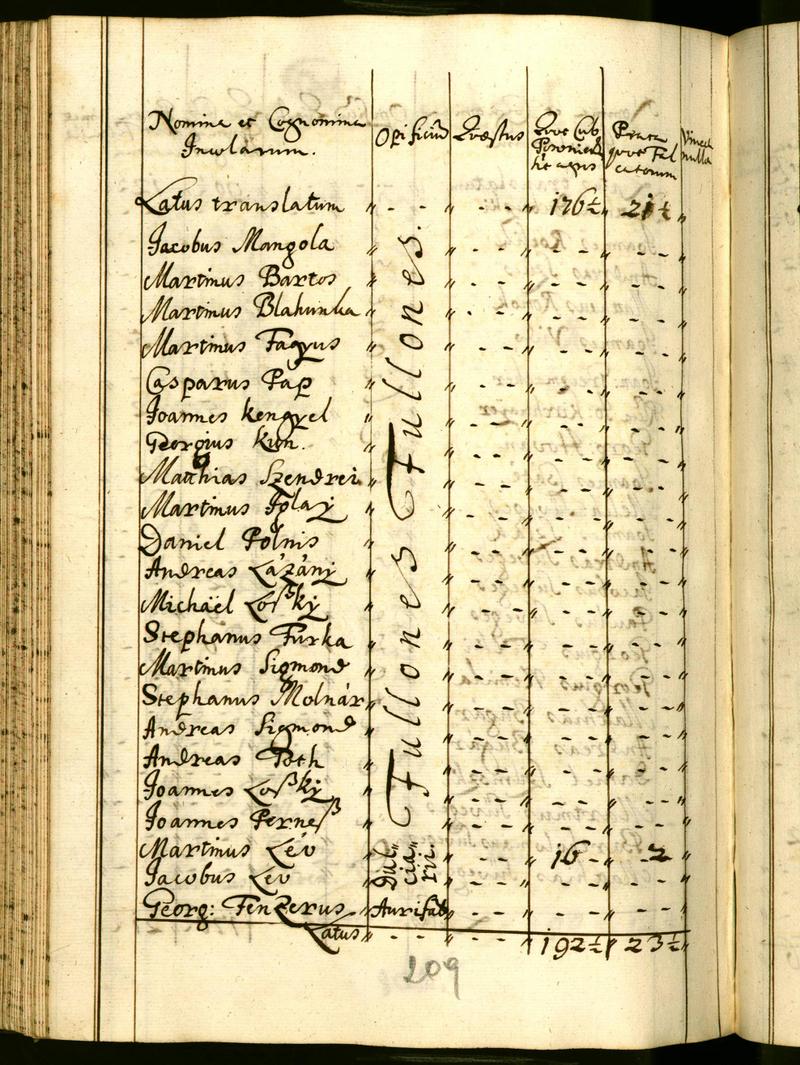 Nomina et Cognomina Incolarum. Opificiū Quæstus Quot Cub. hic agris Prata quot Fal catorum Vineæ nulla
Latus translatum 〃 - - 〃 - - 〃 176½ 〃 21½ 〃
Jacobus Mangola
Martinus Bartos
Martinus Blahunka
Martinus Fagyus
Casparus Pap
Joannes Kengyel
Georgius Kun.
Matthias Szendrei
Martinus Iplaÿ
Daniel Polnis
Andreas Lázánÿ
Michäel Loßkÿ
Stephanus Furka
Martinus Sigmond
Stephanus Molnár
Andreas Sigmond
Andreas Poth
Joannes Loßkÿ
Joannes Perneß
Fullones Fullones.
Martinus Lév 16 - 2
Jacobus Lev
Dul- cia- rii
Georg: Fenzerus Aurifab
Latus 〃 - - 〃 - - 〃 192½ 〃 23½ 〃
209